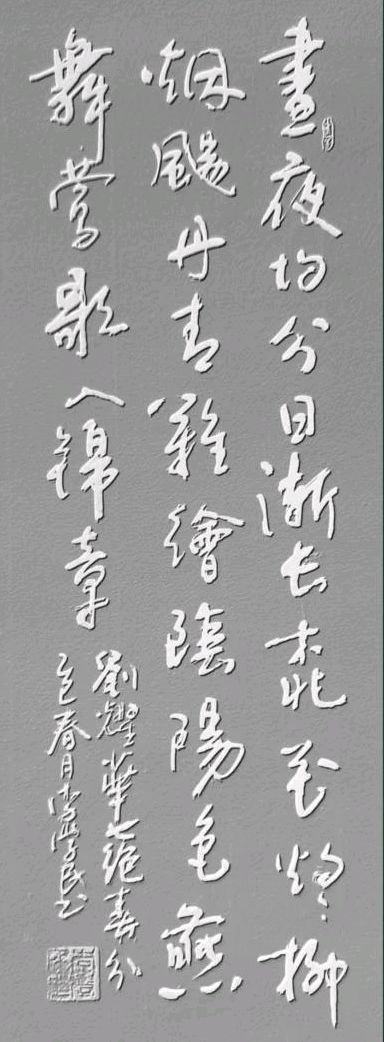 晝夜均分日漸長桃花灼〻柳
烟颺丹青難繪陰陽色燕
舞鶯歌入錦章
劉耀華絕春分
春月民书